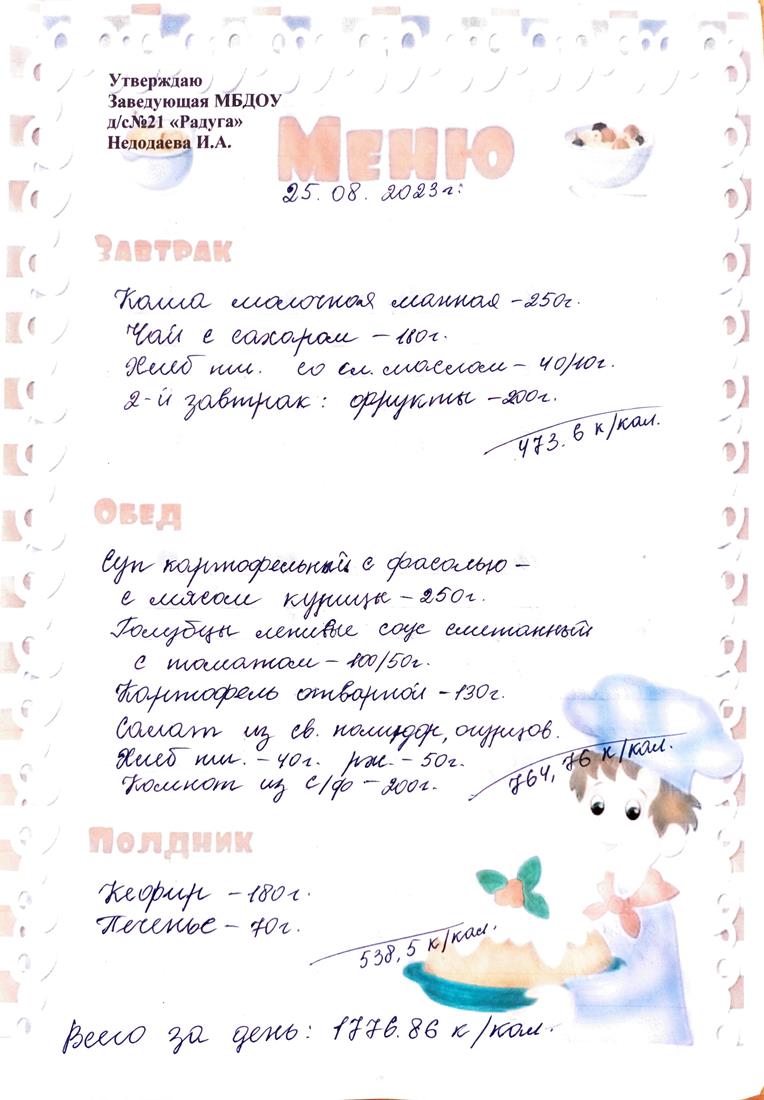 Утверждаю
Заведующая МБДОУ
д/с№21 «Радуга»
Недодаева И.А.
Меню
25.08.2023г.
Завтрак
Каша молочная манная – 250г.
Чай с сахаром – 180г.
Хлеб пш. со сл. маслом – 40/10г.
2-й завтрак: фрукты – 200г.
473.6 к/кал.
Обед
Суп картофельный с фасолью –
с мясом курицы – 250г.
Голубцы ленивые соус сметанный
с томатом – 100/50г.
Картофель отварной – 130г.
Салат из св. помидор, огурцов.
Хлеб пш. – 40г. рж. – 50г.
Компот из с/ф – 200г.
764,76 к/кал.
Полдник
Кефир – 180г.
Печенье – 70г.
538,5 к/кал.
Всего за день: 1776.86 к/кал.